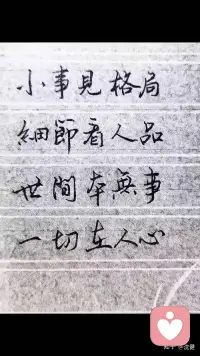 小事見格局
細節看人品
世間本無事
一切在人心
知乎 @沈健